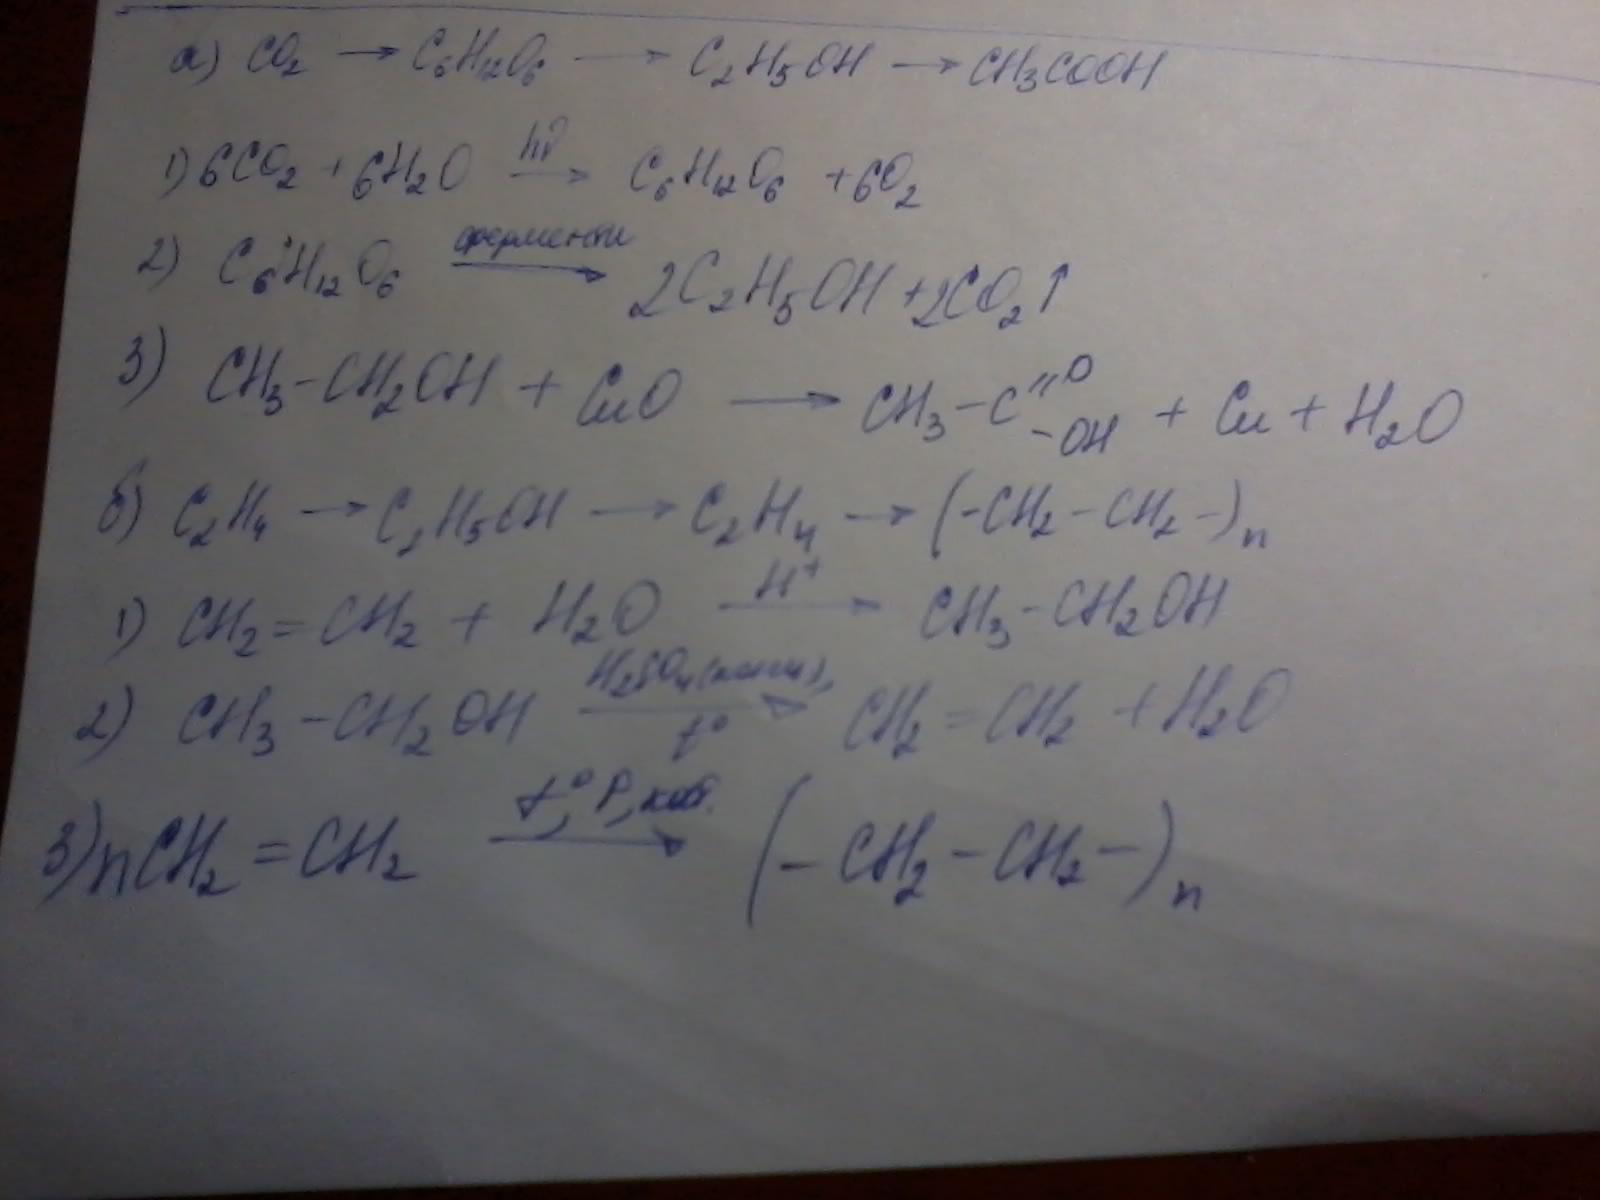 а) CO₂ → C₆H₁₂O₆ → C₂H₅OH → CH₃COOH
1) 6CO₂ + 6H₂O →(hν) C₆H₁₂O₆ + 6O₂
2) C₆H₁₂O₆ →(ферменты) 2C₂H₅OH + 2CO₂↑
3) CH₃-CH₂OH + CuO → CH₃-C(=O)-OH + Cu + H₂O
б) C₂H₄ → C₂H₅OH → C₂H₄ → (-CH₂-CH₂-)n
1) CH₂=CH₂ + H₂O →(H⁺) CH₃-CH₂OH
2) CH₃-CH₂OH →(H₂SO₄(конц), t°) CH₂=CH₂ + H₂O
3) nCH₂=CH₂ →(t°, P, кат.) (-CH₂-CH₂-)n